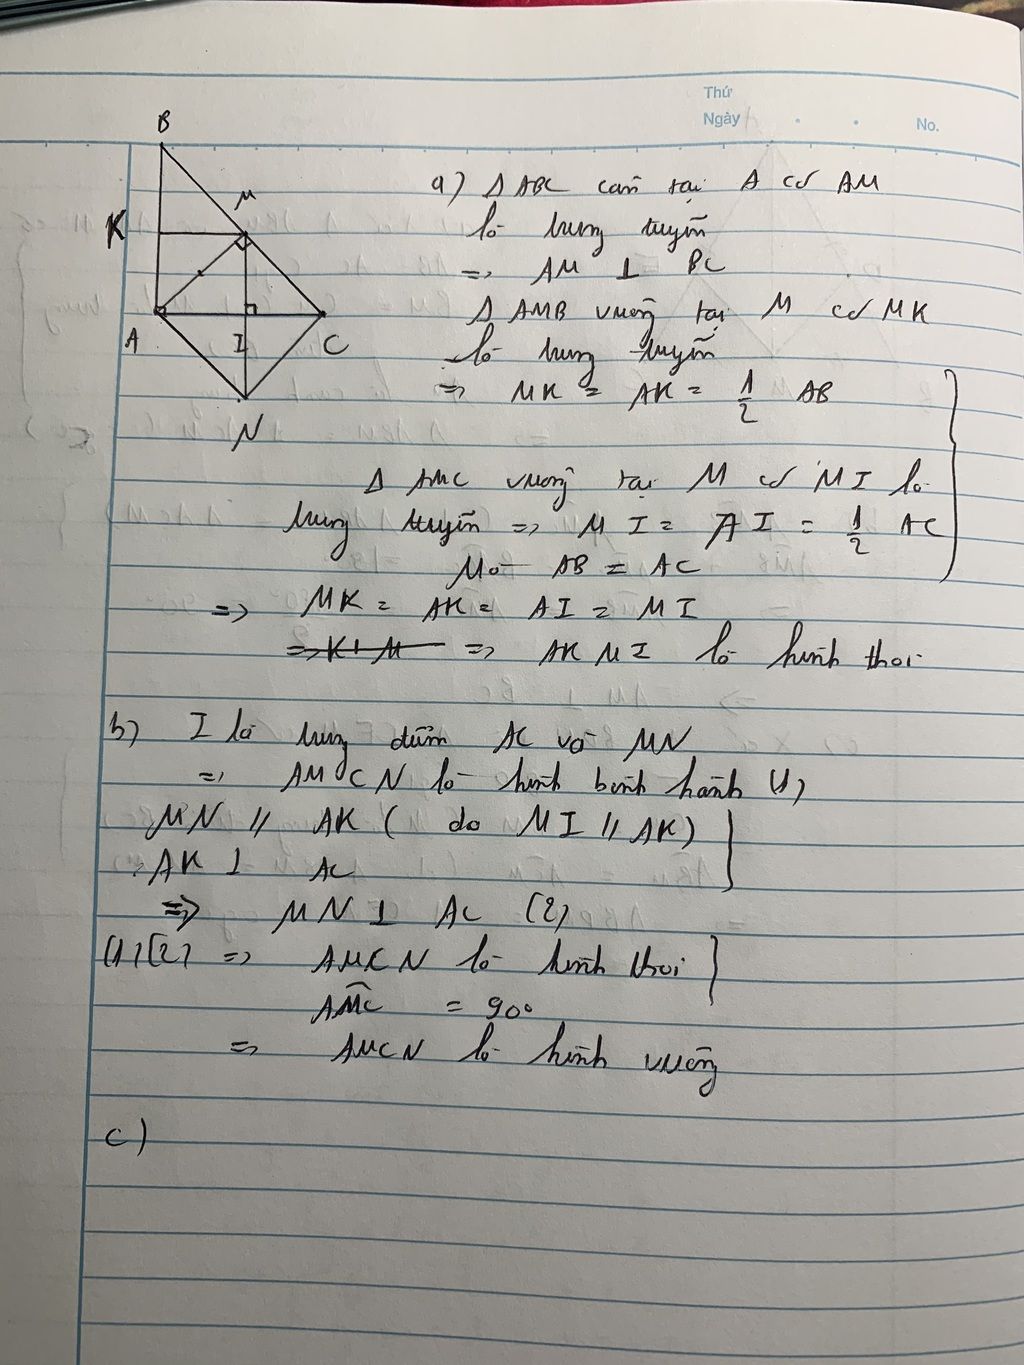 Thứ
Ngày
No.
B
M
K
A
I
C
N
a) Δ ABC cân tại A có AM
là trung tuyến
=> AM ⊥ BC
Δ AMB vuông tại M có MK
là trung tuyến
=> MK = AK = 1/2 AB
Δ AMC vuông tại M có MI là
trung tuyến => MI = AI = 1/2 AC
Mà AB = AC
=> MK = AK = AI = MI
=> AKMI là hình thoi
b) I là trung điểm AC và MN
=> AMCN là hình bình hành (1)
MN // AK ( do MI // AK)
AK ⊥ AC
=> MN ⊥ AC (2)
(1)(2) => AMCN là hình thoi
AMC = 90°
=> AMCN là hình vuông
c)